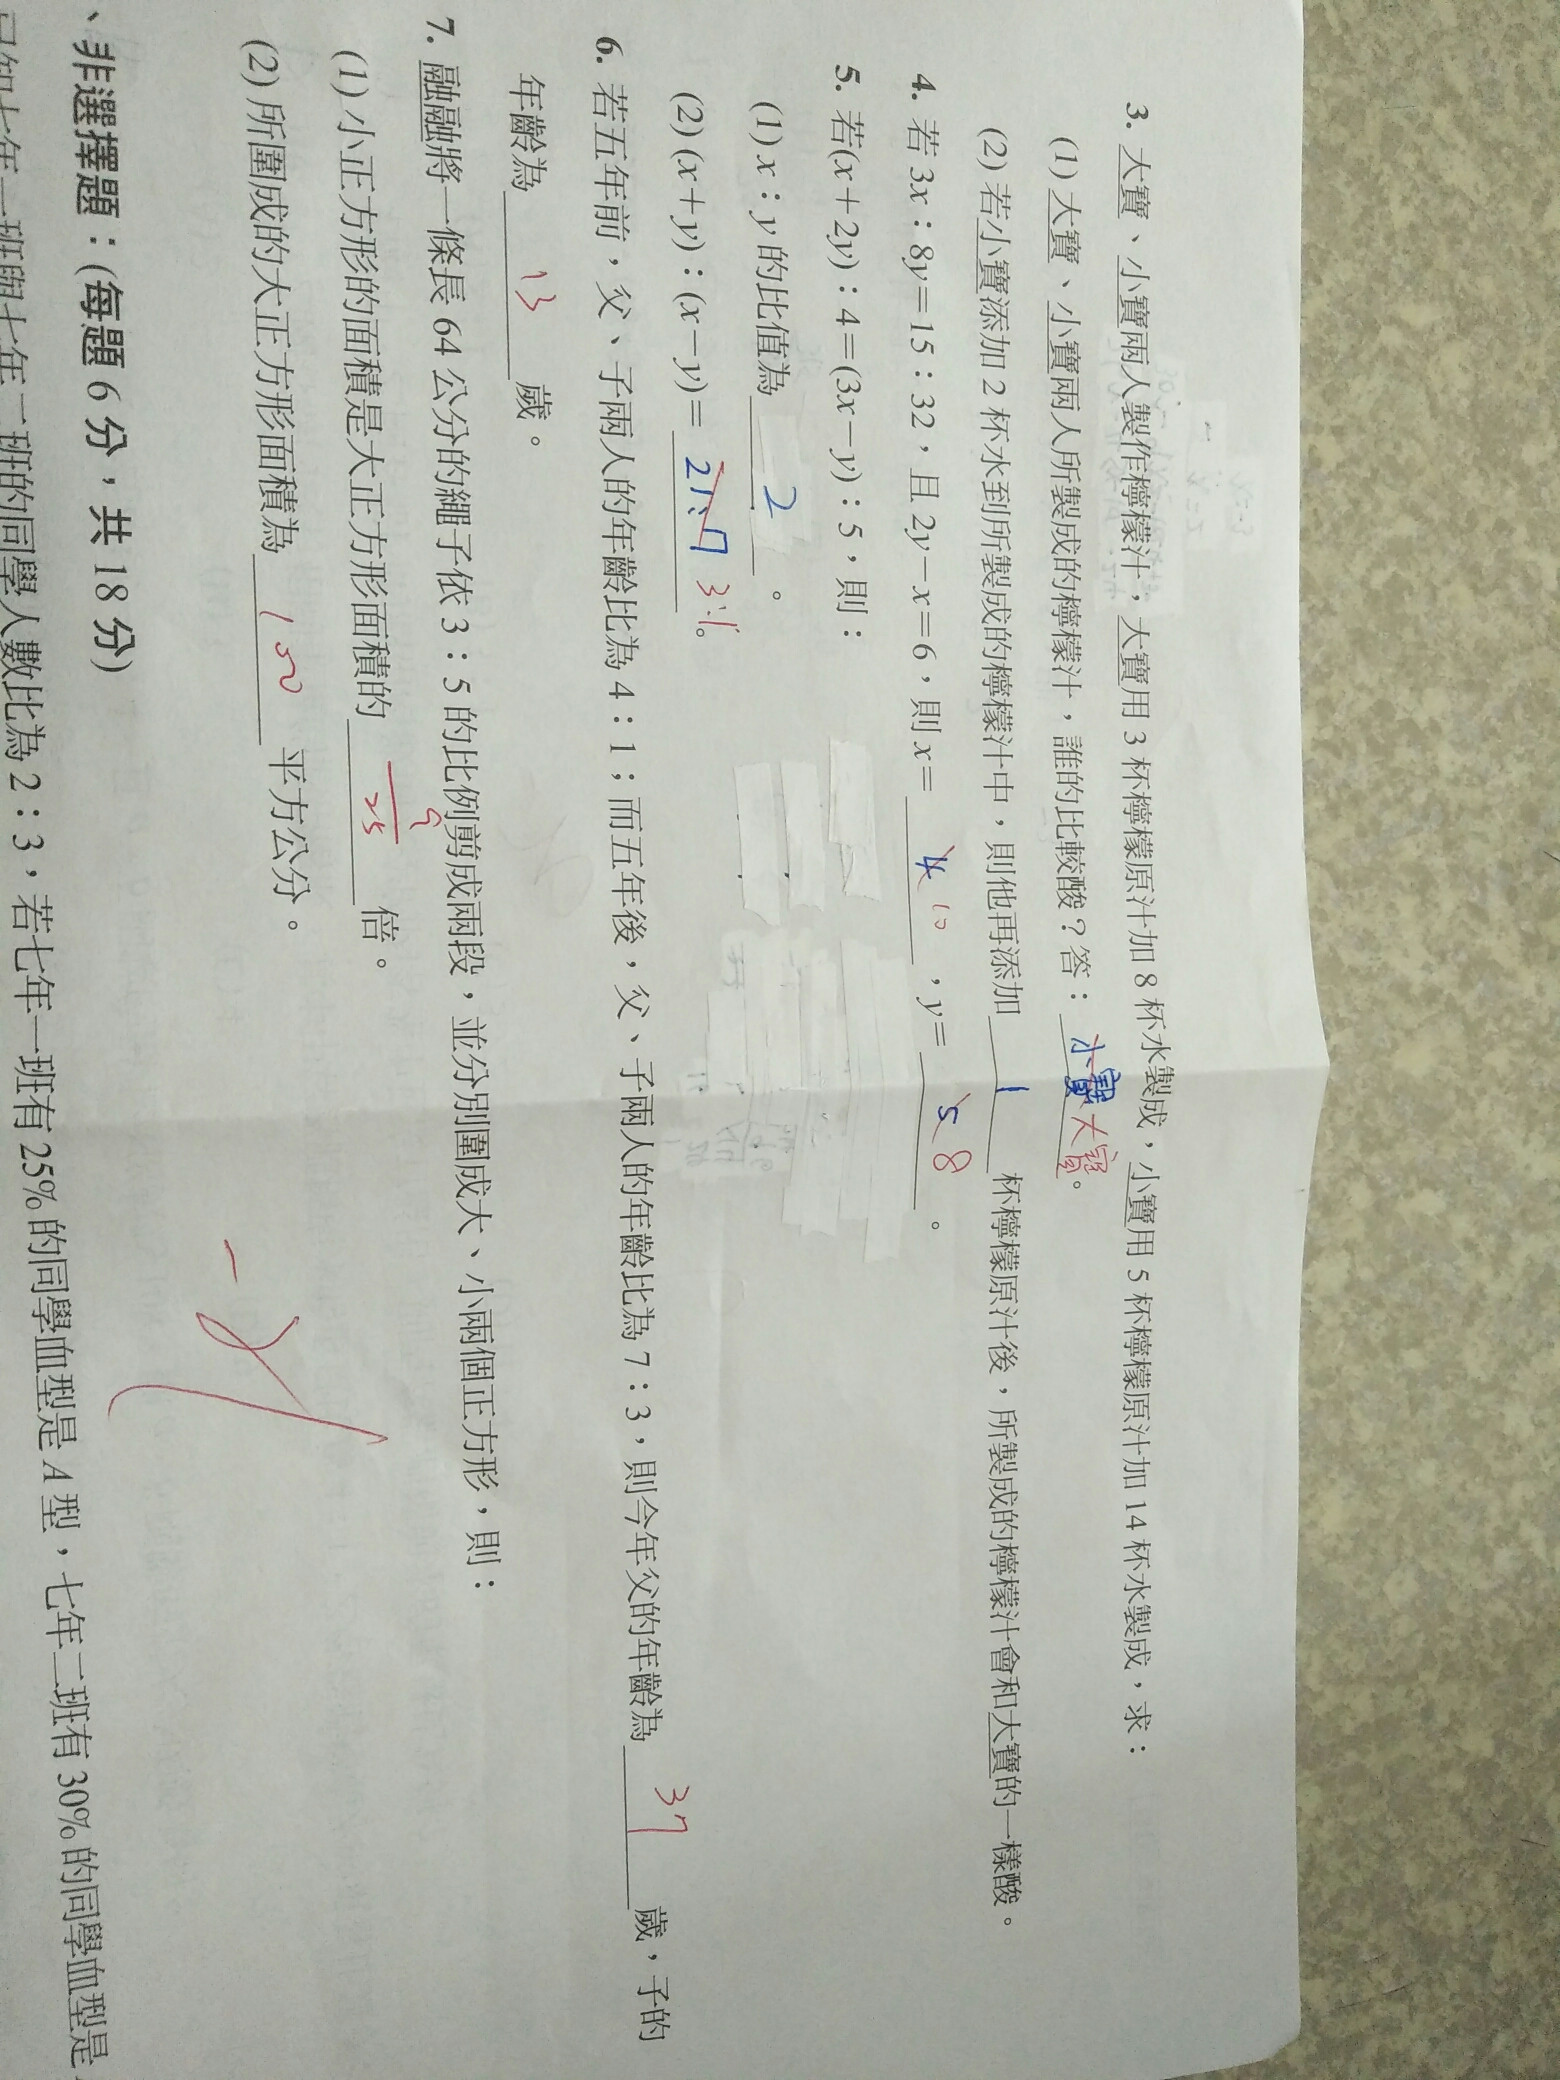 3. 大寶、小寶兩人製作檸檬汁，大寶用 3 杯檸檬原汁加 8 杯水製成，小寶用 5 杯檸檬原汁加 14 杯水製成，求：
(1) 大寶、小寶兩人所製成的檸檬汁，誰的比較酸？答：小寶 大寶。
(2) 若小寶添加 2 杯水到所製成的檸檬汁中，則他再添加 1 杯檸檬原汁後，所製成的檸檬汁會和大寶的一樣酸。
4. 若 3x：8y＝15：32，且 2y－x＝6，則 x＝ 4 10 ，y＝ 5 8 。
5. 若(x＋2y)：4＝(3x－y)：5，則：
(1) x：y 的比值為 2 。
(2) (x＋y)：(x－y)＝ 21:7 3:1。
6. 若五年前，父、子兩人的年齡比為 4：1；而五年後，父、子兩人的年齡比為 7：3，則今年父的年齡為 37 歲，子的
年齡為 13 歲。
7. 融融將一條長 64 公分的繩子依 3：5 的比例剪成兩段，並分別圍成大、小兩個正方形，則：
(1) 小正方形的面積是大正方形面積的 9/25 倍。
(2) 所圍成的大正方形面積為 100 平方公分。
、非選擇題：(每題 6 分，共 18 分)
已知七年一班與七年二班的同學人數比為 2：3，若七年一班有 25% 的同學血型是 A 型，七年二班有 30% 的同學血型是